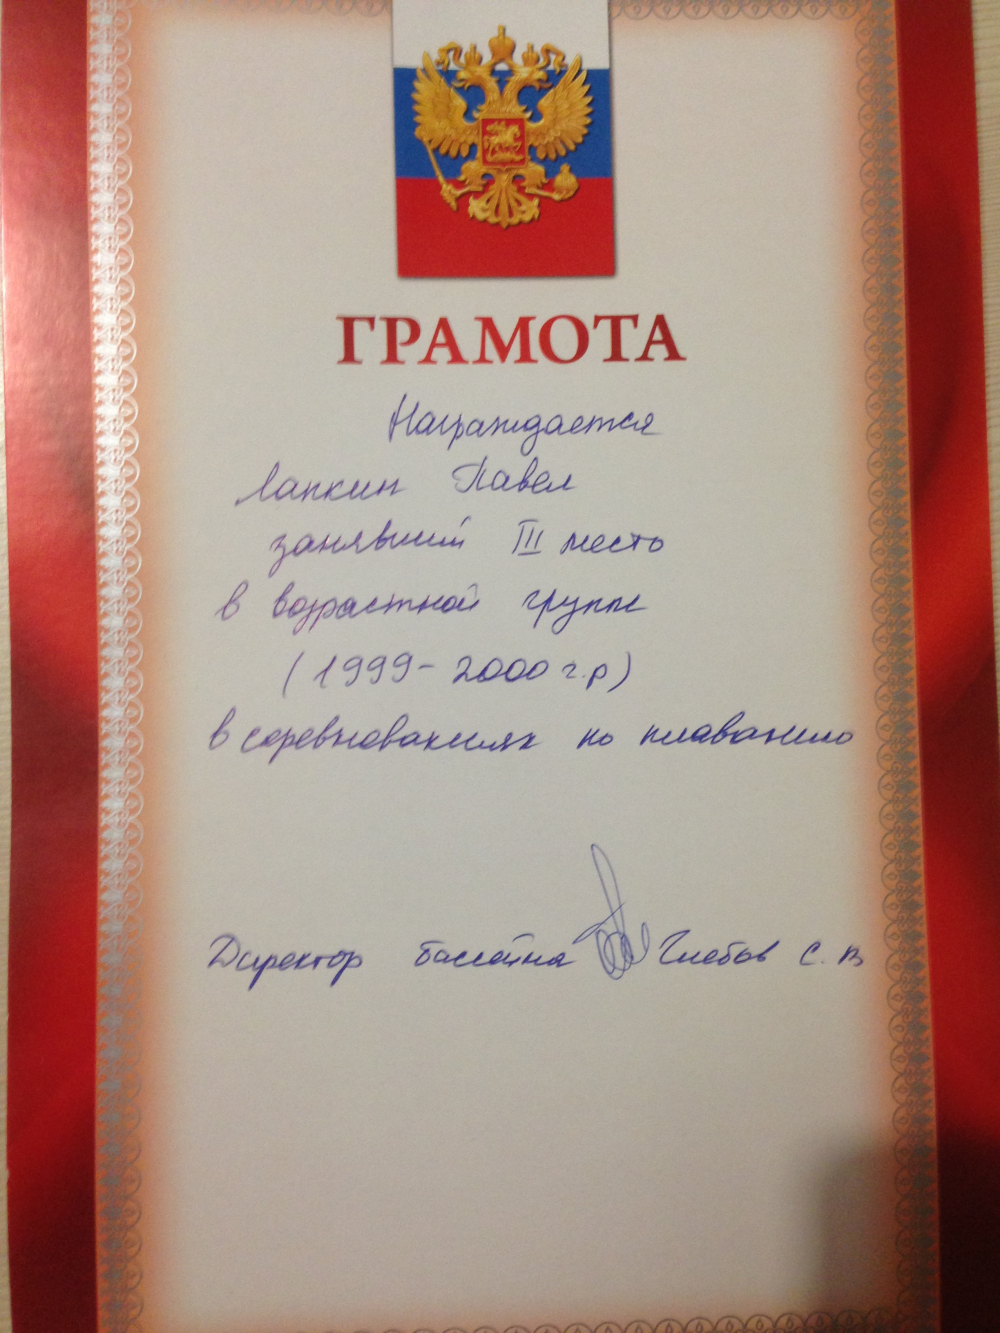 ГРАМОТА
Награждается
Лапкин Павел
занявший III место
в возрастной группе
(1999-2000 г.р)
в соревнованиях по плаванию
Директор бассейна Глебов С. В